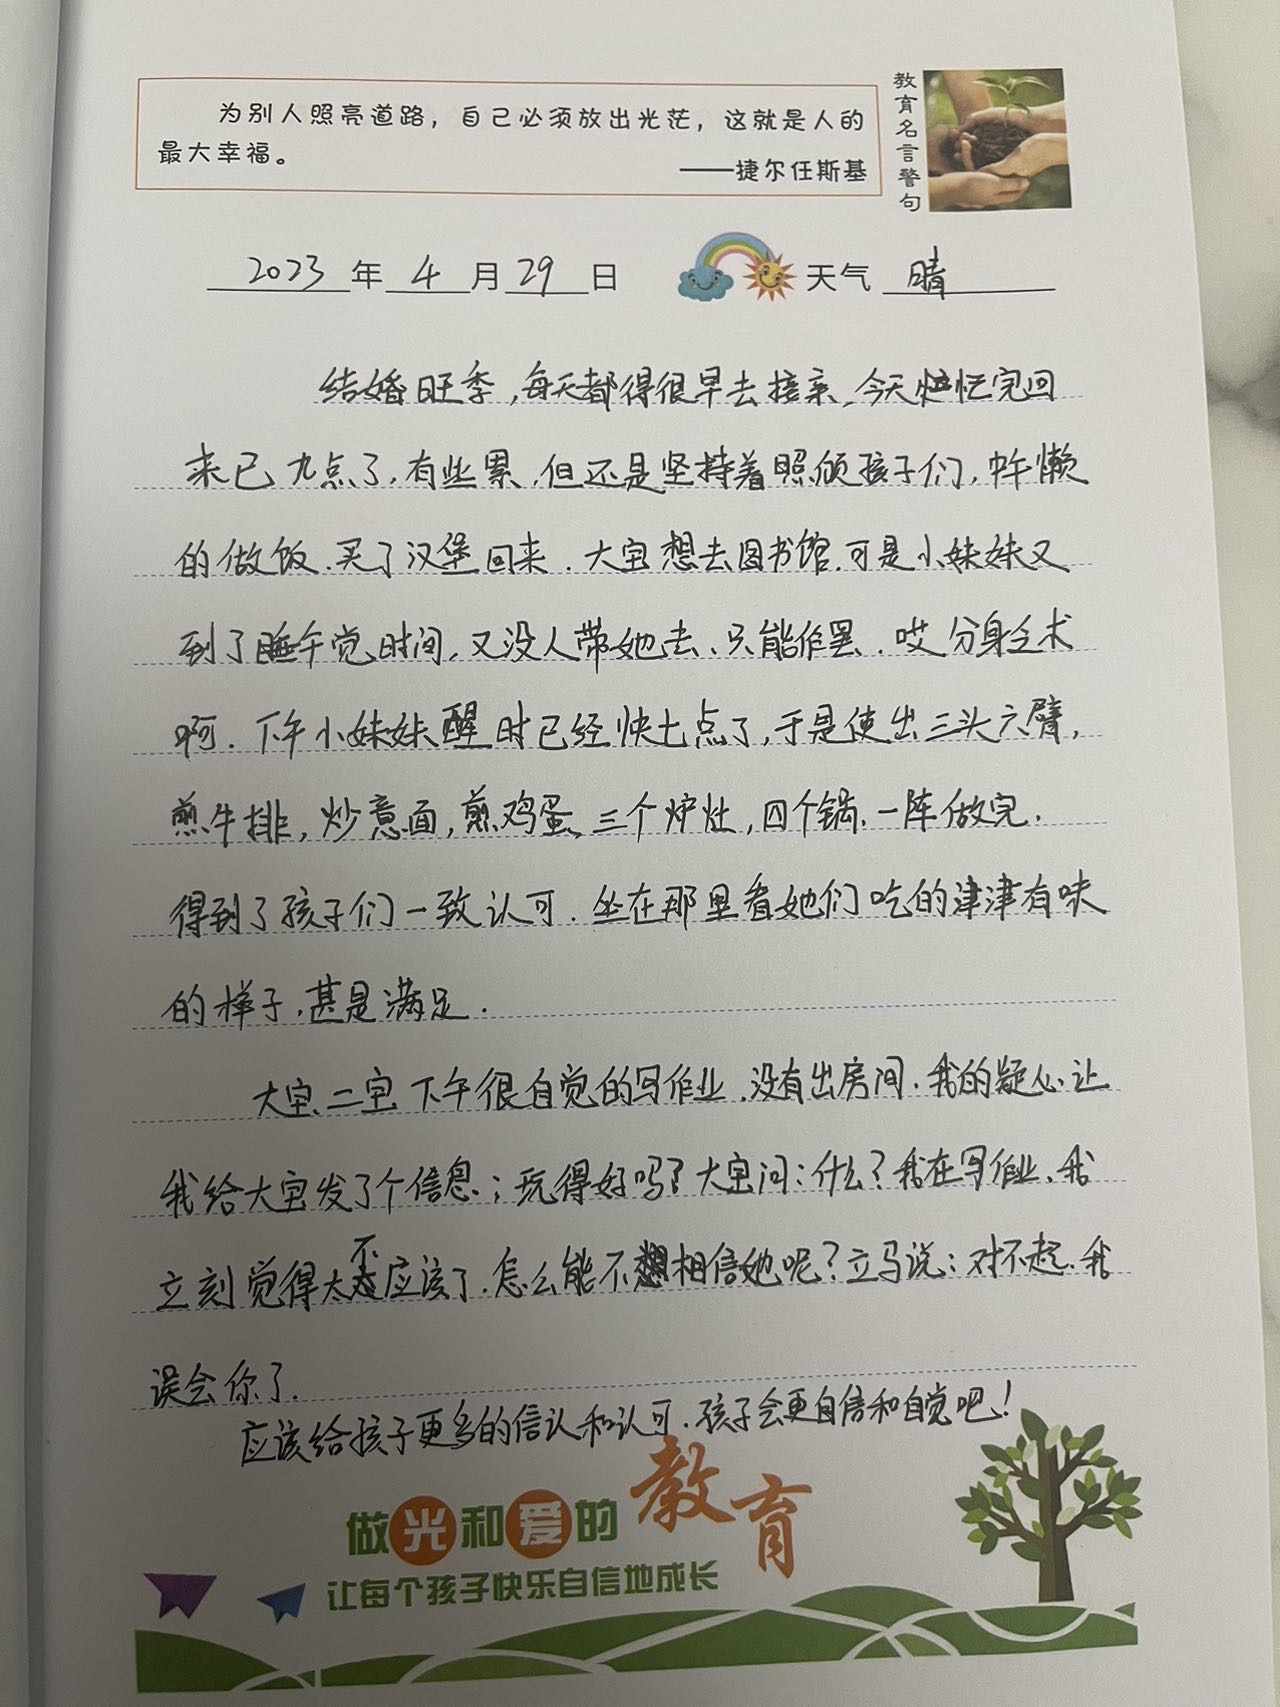 为别人照亮道路，自己必须放出光茫，这就是人的
最大幸福。
——捷尔任斯基
教育名言警句
2023年4月29日 天气 晴
结婚旺季，每天都得很早去接亲，今天忙完回
来已九点了，有些累，但还是坚持着照顾孩子们，中午懒
的做饭，买了汉堡回来．大宝想去图书馆，可是小妹妹又
到了睡午觉时间，又没人带她去、只能作罢．哎分身乏术
啊．下午小妹妹醒时已经快七点了，于是使出三头六臂，
煎牛排，炒意面，煎鸡蛋，三个炉灶，四个锅，一阵做完．
得到了孩子们一致认可．坐在那里看她们吃的津津有味
的样子，甚是满足．
大宝、二宝下午很自觉的写作业，没有出房间．我的疑心让
我给大宝发了个信息；玩得好吗？大宝问：什么？我在写作业、我
立刻觉得太不应该了．怎么能不相信她呢？立马说：对不起．我
误会你了．
应该给孩子更多的信认和认可．孩子会更自信和自觉吧！
做光和爱的教育
让每个孩子快乐自信地成长